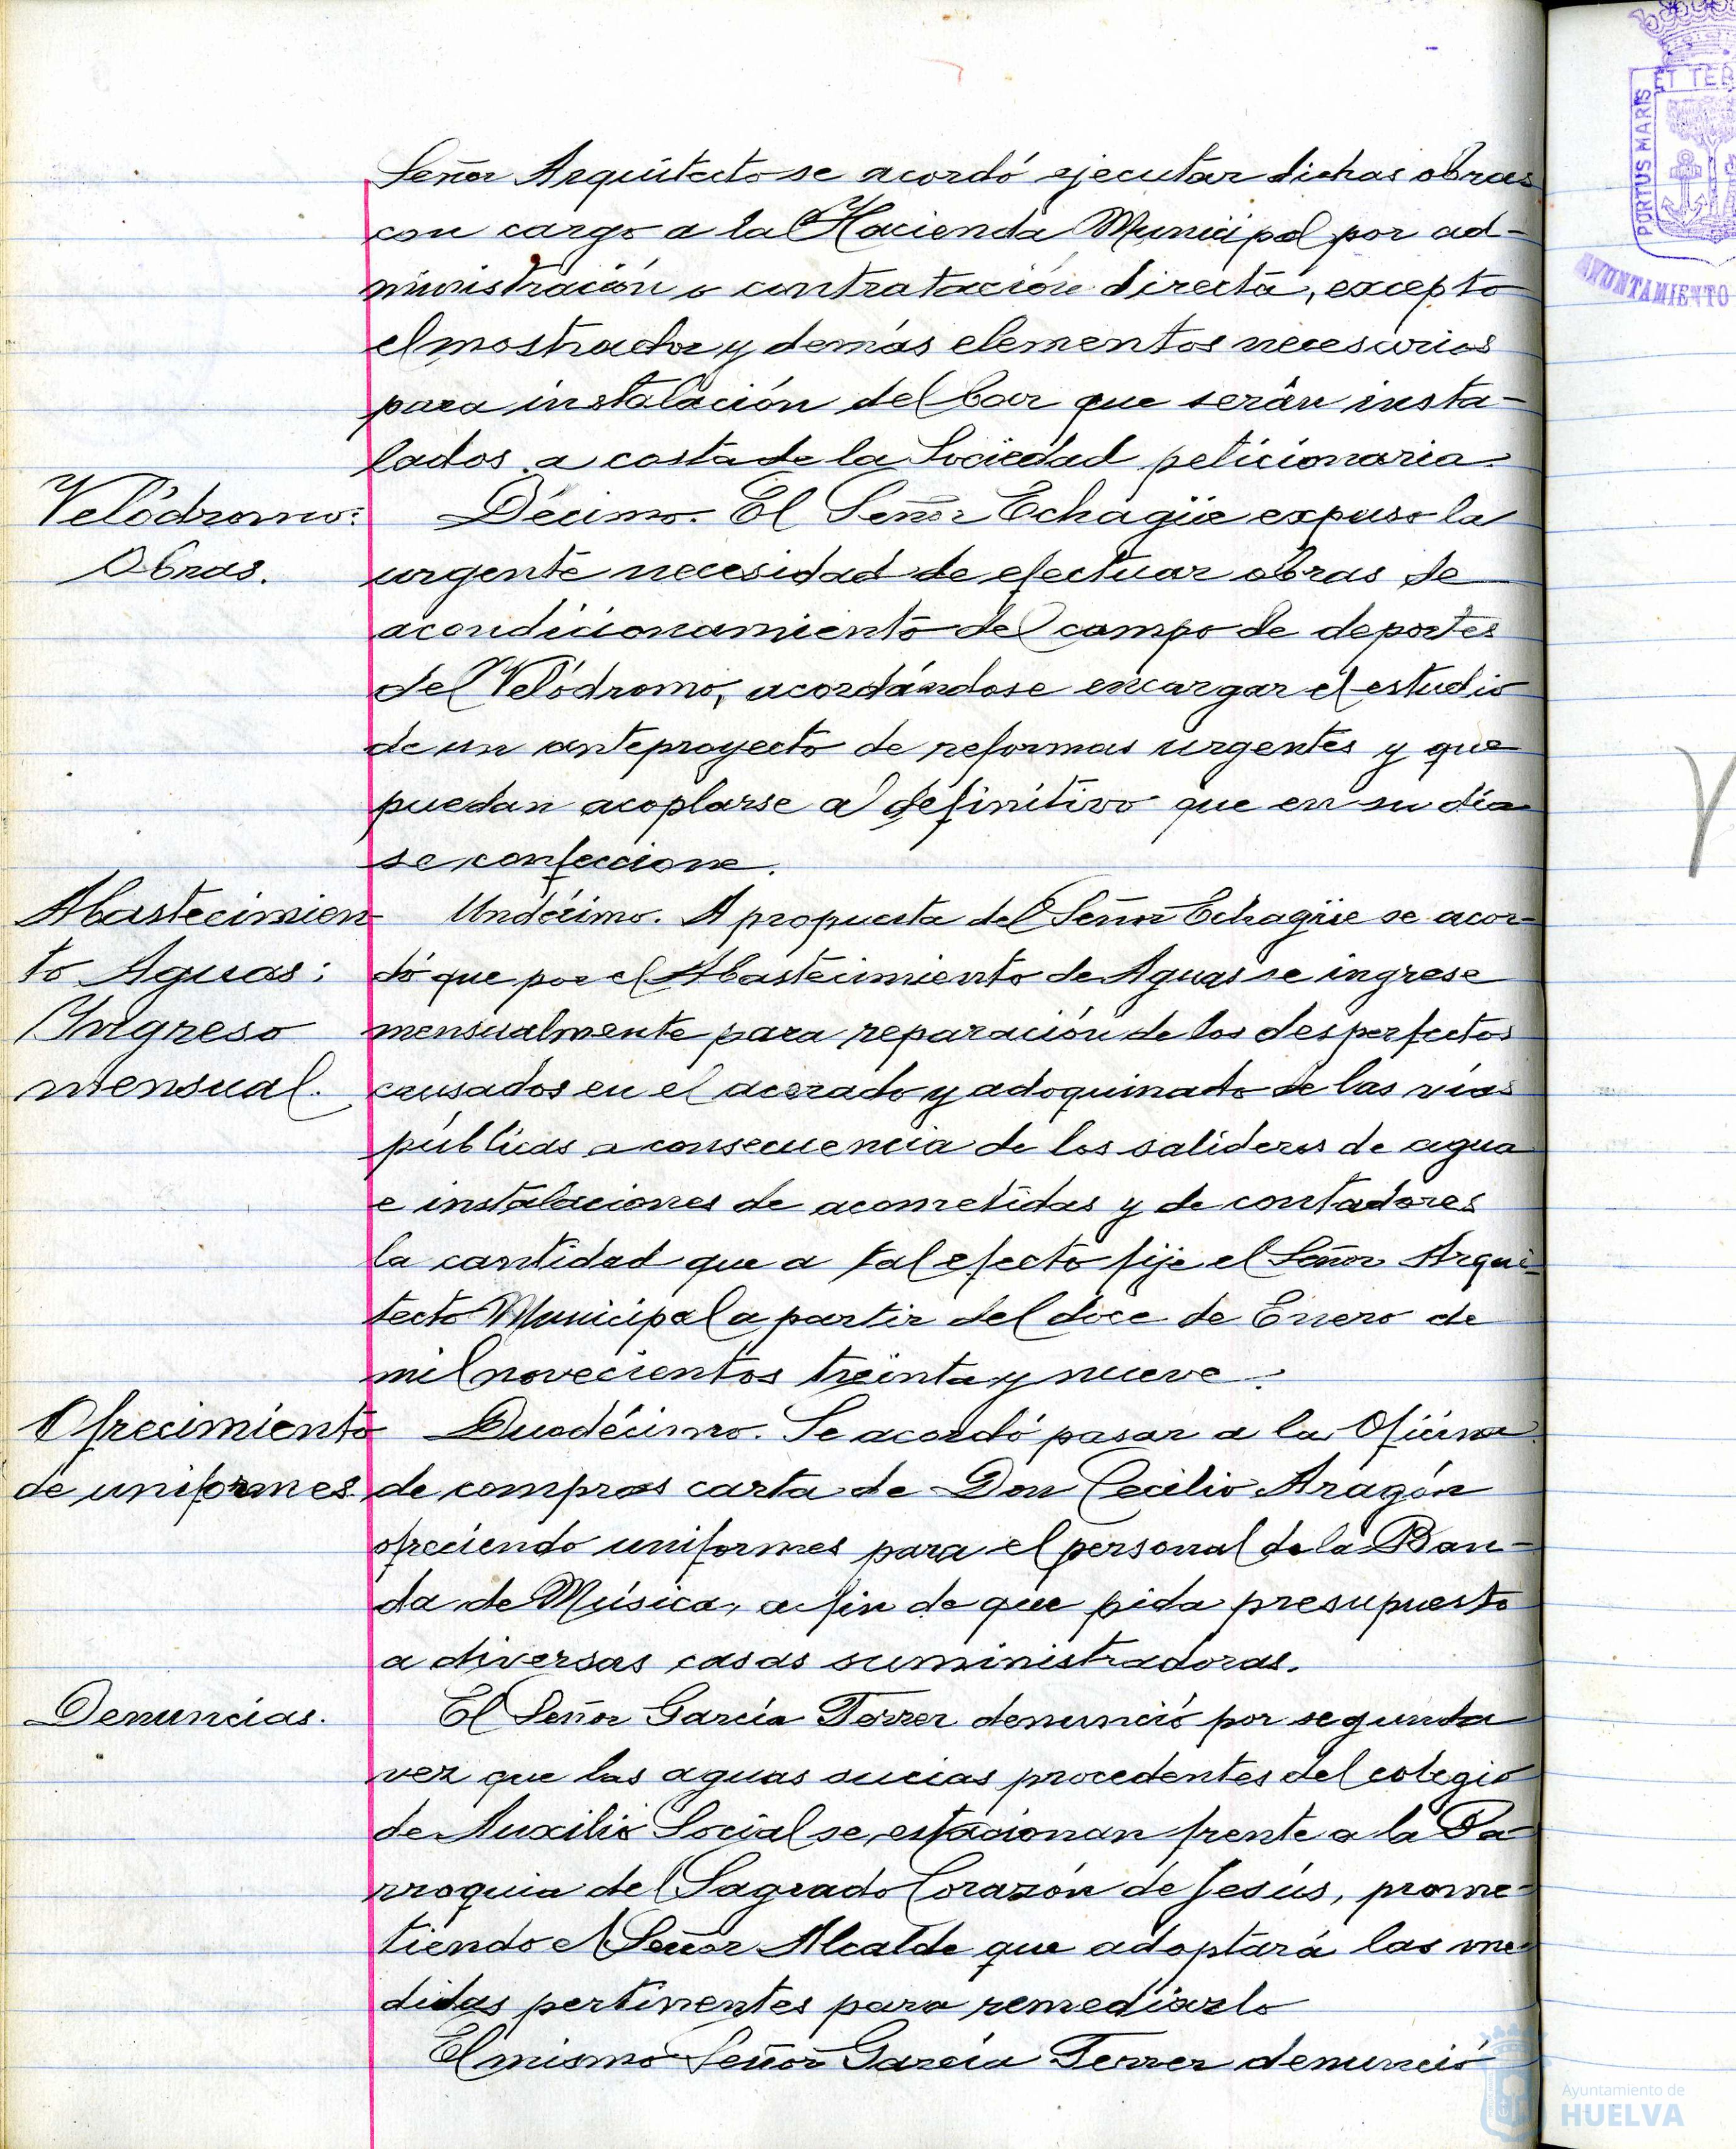 Señor Arquitecto se acordó ejecutar dichas obras
con cargo a la Hacienda Municipal por ad-
ministración o contratación directa, excepto
el mostrador y demás elementos necesarios
para instalación del bar que serán insta-
lados a costa de la Sociedad peticionaria.
Velódromo:
Obras.
Décimo. El Señor Echagüe expuso la
urgente necesidad de efectuar obras de
acondicionamiento del campo de deportes
del Velódromo, acordándose encargar el estudio
de un anteproyecto de reformas urgentes y que
puedan acoplarse al definitivo que en su día
se confeccione.
Abastecimien
to Aguas:
Ingreso
mensual.
Undécimo. A propuesta del Señor Echagüe se acor-
dó que por el Abastecimiento de Aguas se ingrese
mensualmente para reparación de los desperfectos
causados en el acerado y adoquinado de las vías
públicas a consecuencia de los salideros de agua
e instalaciones de acometidas y de contadores
la cantidad que a tal efecto fije el Señor Arqui-
tecto Municipal a partir del doce de Enero de
mil novecientos treinta y nueve.
Ofrecimiento
de uniformes
Duodécimo. Se acordó pasar a la Oficina
de compras carta de Don Cecilio Aragón
ofreciendo uniformes para el personal de la Ban-
da de Música, a fin de que pida presupuesto
a diversas casas suministradoras.
Denuncias.
El Señor García Ferrer denunció por segunda
vez que las aguas sucias procedentes del colegio
de Auxilio Social se estacionan frente a la Pa-
rroquia del Sagrado Corazón de Jesús, prome-
tiendo el Señor Alcalde que adoptará las me-
didas pertinentes para remediarlo
El mismo Señor García Ferrer denunció
PORTUS MARIS
ET TER
AYUNTAMIENTO
Ayuntamiento de
HUELVA